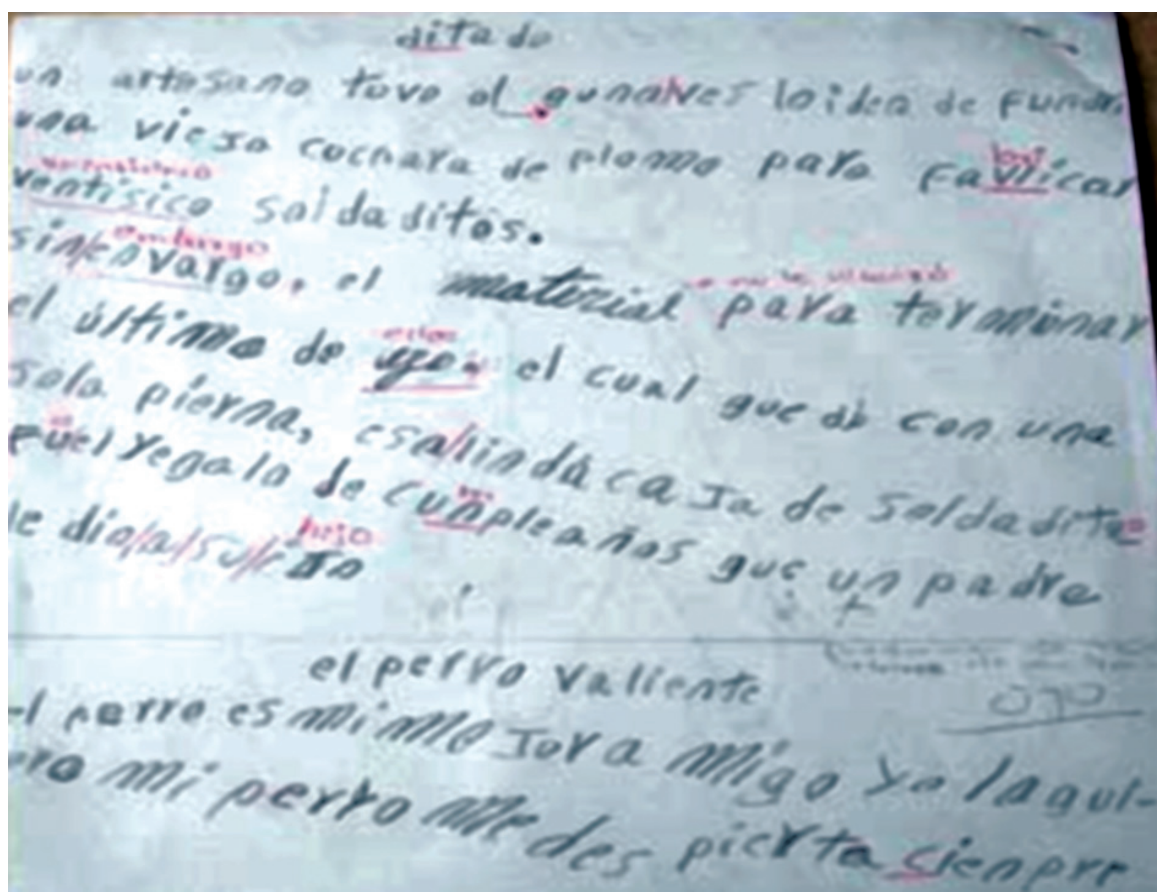 ditado
un artesano tuvo al gunalves la idea de Fundr
una vieJa cochara de plomo para Favricar
ventisico saldaditos.
embargo
sin/envargo, el material para terminar
el último de
ellos
el cual quedó con una
sola pierna, esa/lindá caJa de soldadito
Fuel regalo de cunpleaños que un padre
hijo
le dio/a/su/iJo
el perro valiente
el perro es mi meJor amigo Yo laqui-
ero mi perro me des pierta sienpre